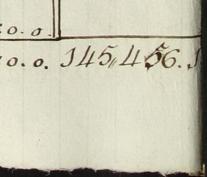 0. 0.
0. 0. 145,,456.